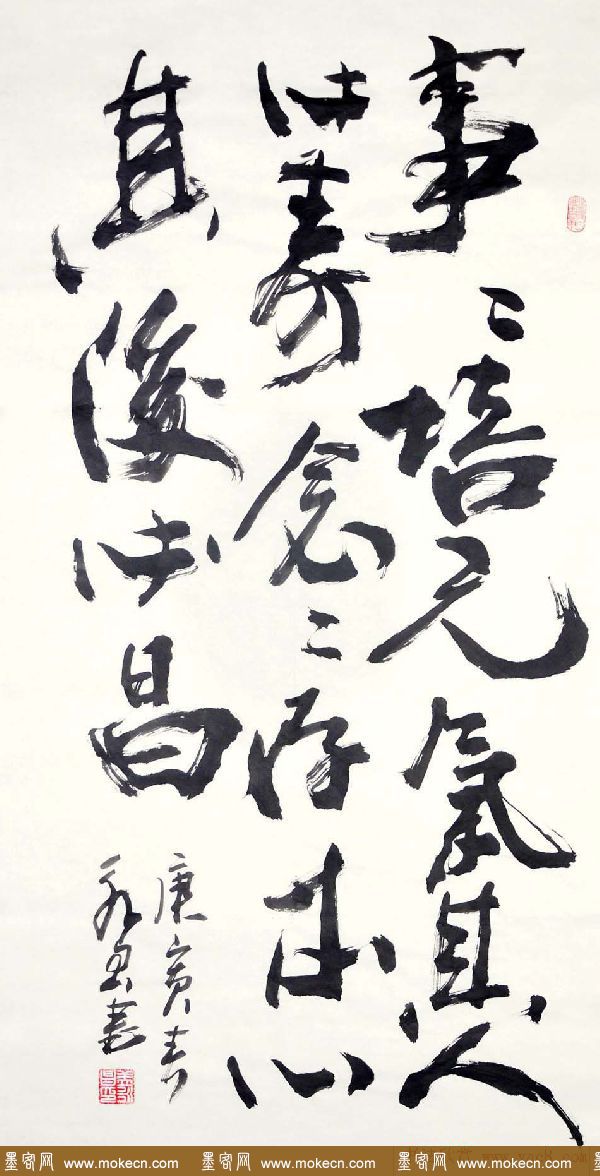 事〻培元氣其人
必壽念〻存本心
其後必昌
庚寅春
墨客网 www.mokecn.com 墨客网 www.mokecn.com 墨客网 www.mokecn.com